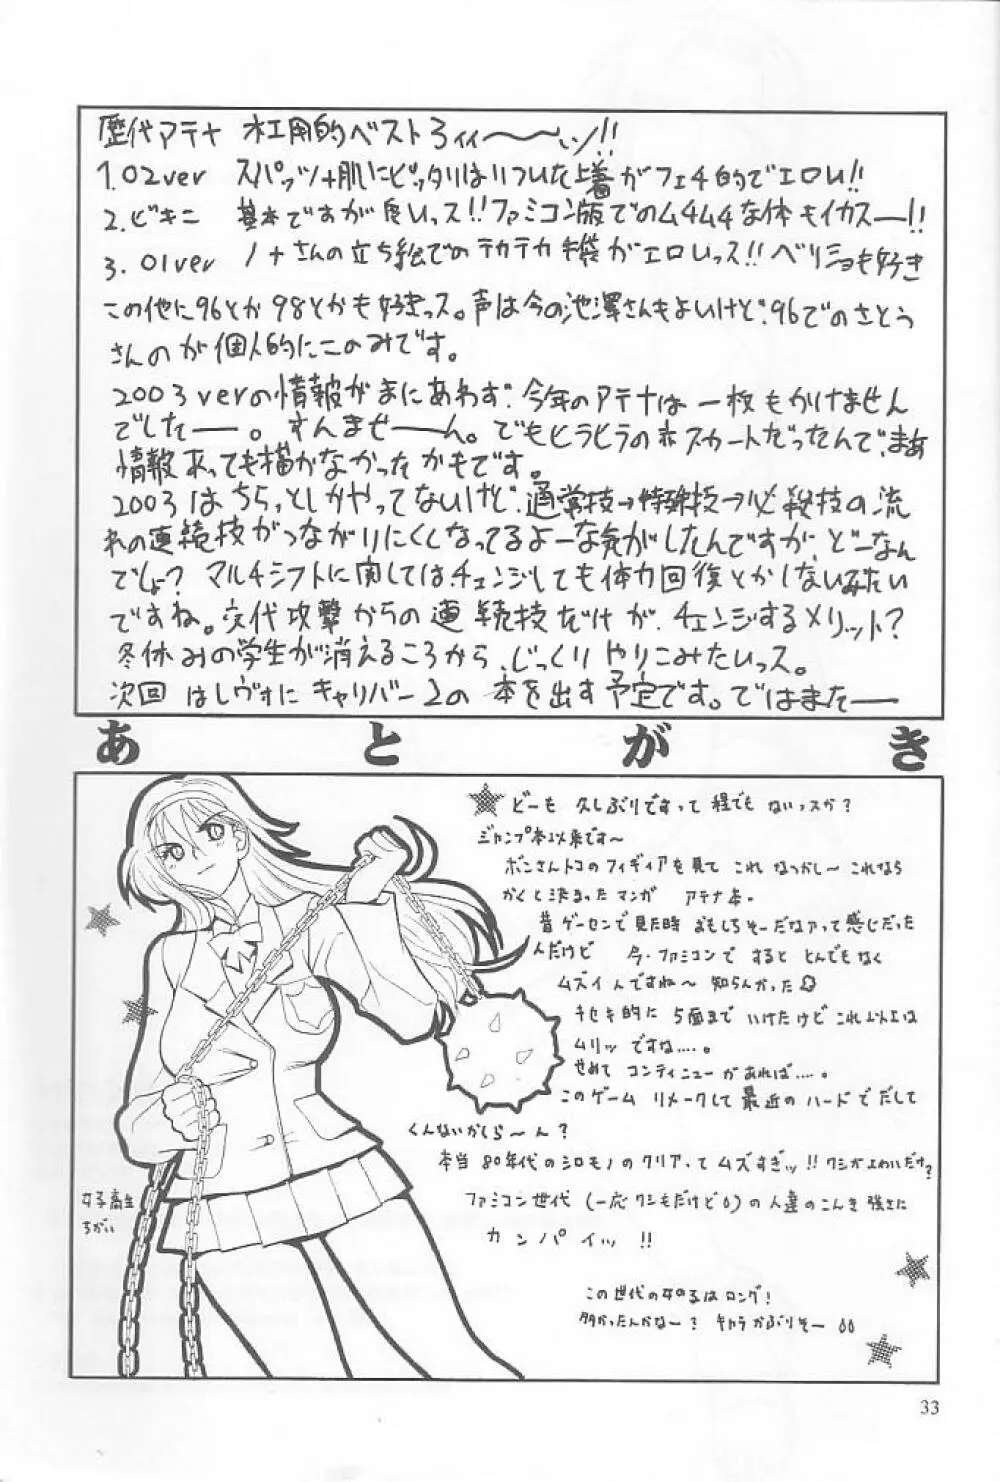 歴代アテナ 木工用的ベスト3ィィ〜〜ッ!!
1.02ver スパッツ+肌にピッタリはりついた上着がフェチ的でエロい!!
2.ビキニ 基本ですが良いっス!!ファミコン版でのムチムチな体もイカスー!!
3.01ver ノナさんの立ち絵でのテカテカ手袋がエロいっス!!ベリショも好き
この他に96とか98とかも好きっス。声は今の池澤さんもよいけど、96でのさとう
さんのが個人的にこのみです。
2003verの情報がまにあわず、今年のアテナは一枚もかけません
でしたー。すんませーん。でもヒラヒラの赤スカートだったんで、まあ
情報来っても描かなかったかもです。
2003はちらっとしかやってないけど、通常技→特殊技→必殺技の流
れの連続技がつながりにくくなってるよーな気がしたんですが、どーなん
でしょ?マルチシフトに関してはチェンジしても体力回復とかしないみたい
ですね。交代攻撃からの連続技だけが、チェンジするメリット?
冬休みの学生が消えるころから、じっくりやりこみたいっス。
次回はレヴォにキャリバー2の本を出す予定です。ではまたー
あとがき
どーも 久しぶりですって程でもないっスか?
ジャンプ本以来です〜
ボンさんトコのフィギィアを見て これ なつかし〜 これなら
かくと決まったマンガ アテナ本。
昔ゲーセンで見た時 おもしろそーだなァって感じだった
んだけど 今・ファミコンで すると とんでもなく
ムズイんですね〜 知らんかった
キセキ的に 5面まで いけたけど これ以上は
ムリッ ですね……。
せめて コンティニューがあれば……。
このゲーム リメークして 最近の ハードで だして
くんないかしら〜ん?
本当 80年代のシロモノのクリアって ムズすぎッ!! ワシがよわいだけ?
ファミコン世代 (一応ワシもだけど) の人達のこんき強さに
カンパイッ!!
女子高生
ちがい
この世代の女のるはロング!
多かったんかなー? キャラかぶりそー
33